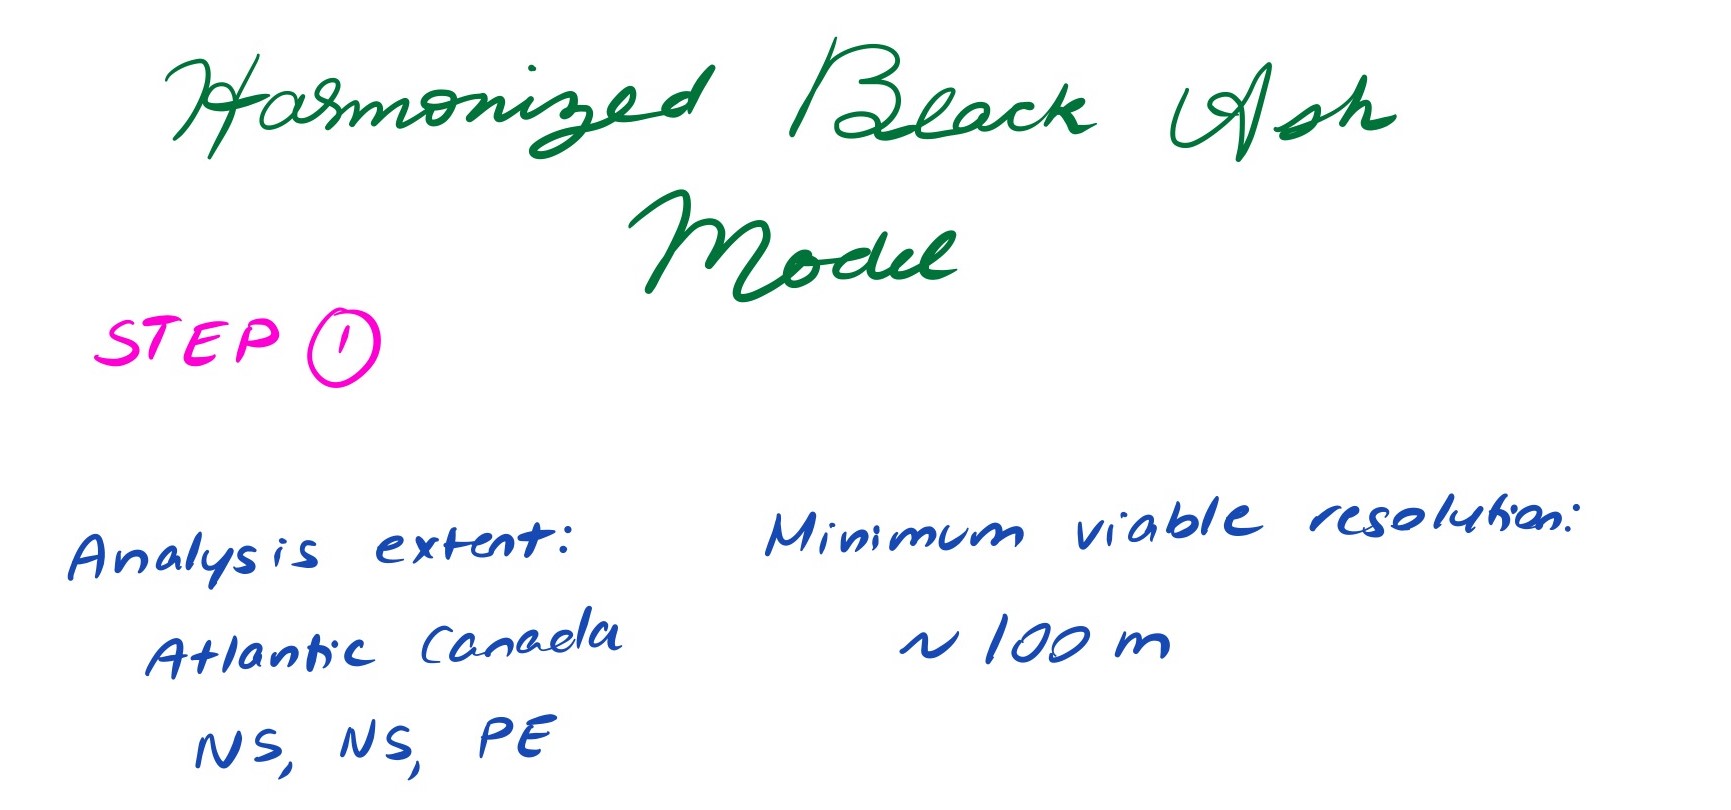 Harmonized Black Ash
Model
STEP 1
Analysis extent:
Atlantic Canada
NS, NS, PE
Minimum viable resolution:
~ 100 m